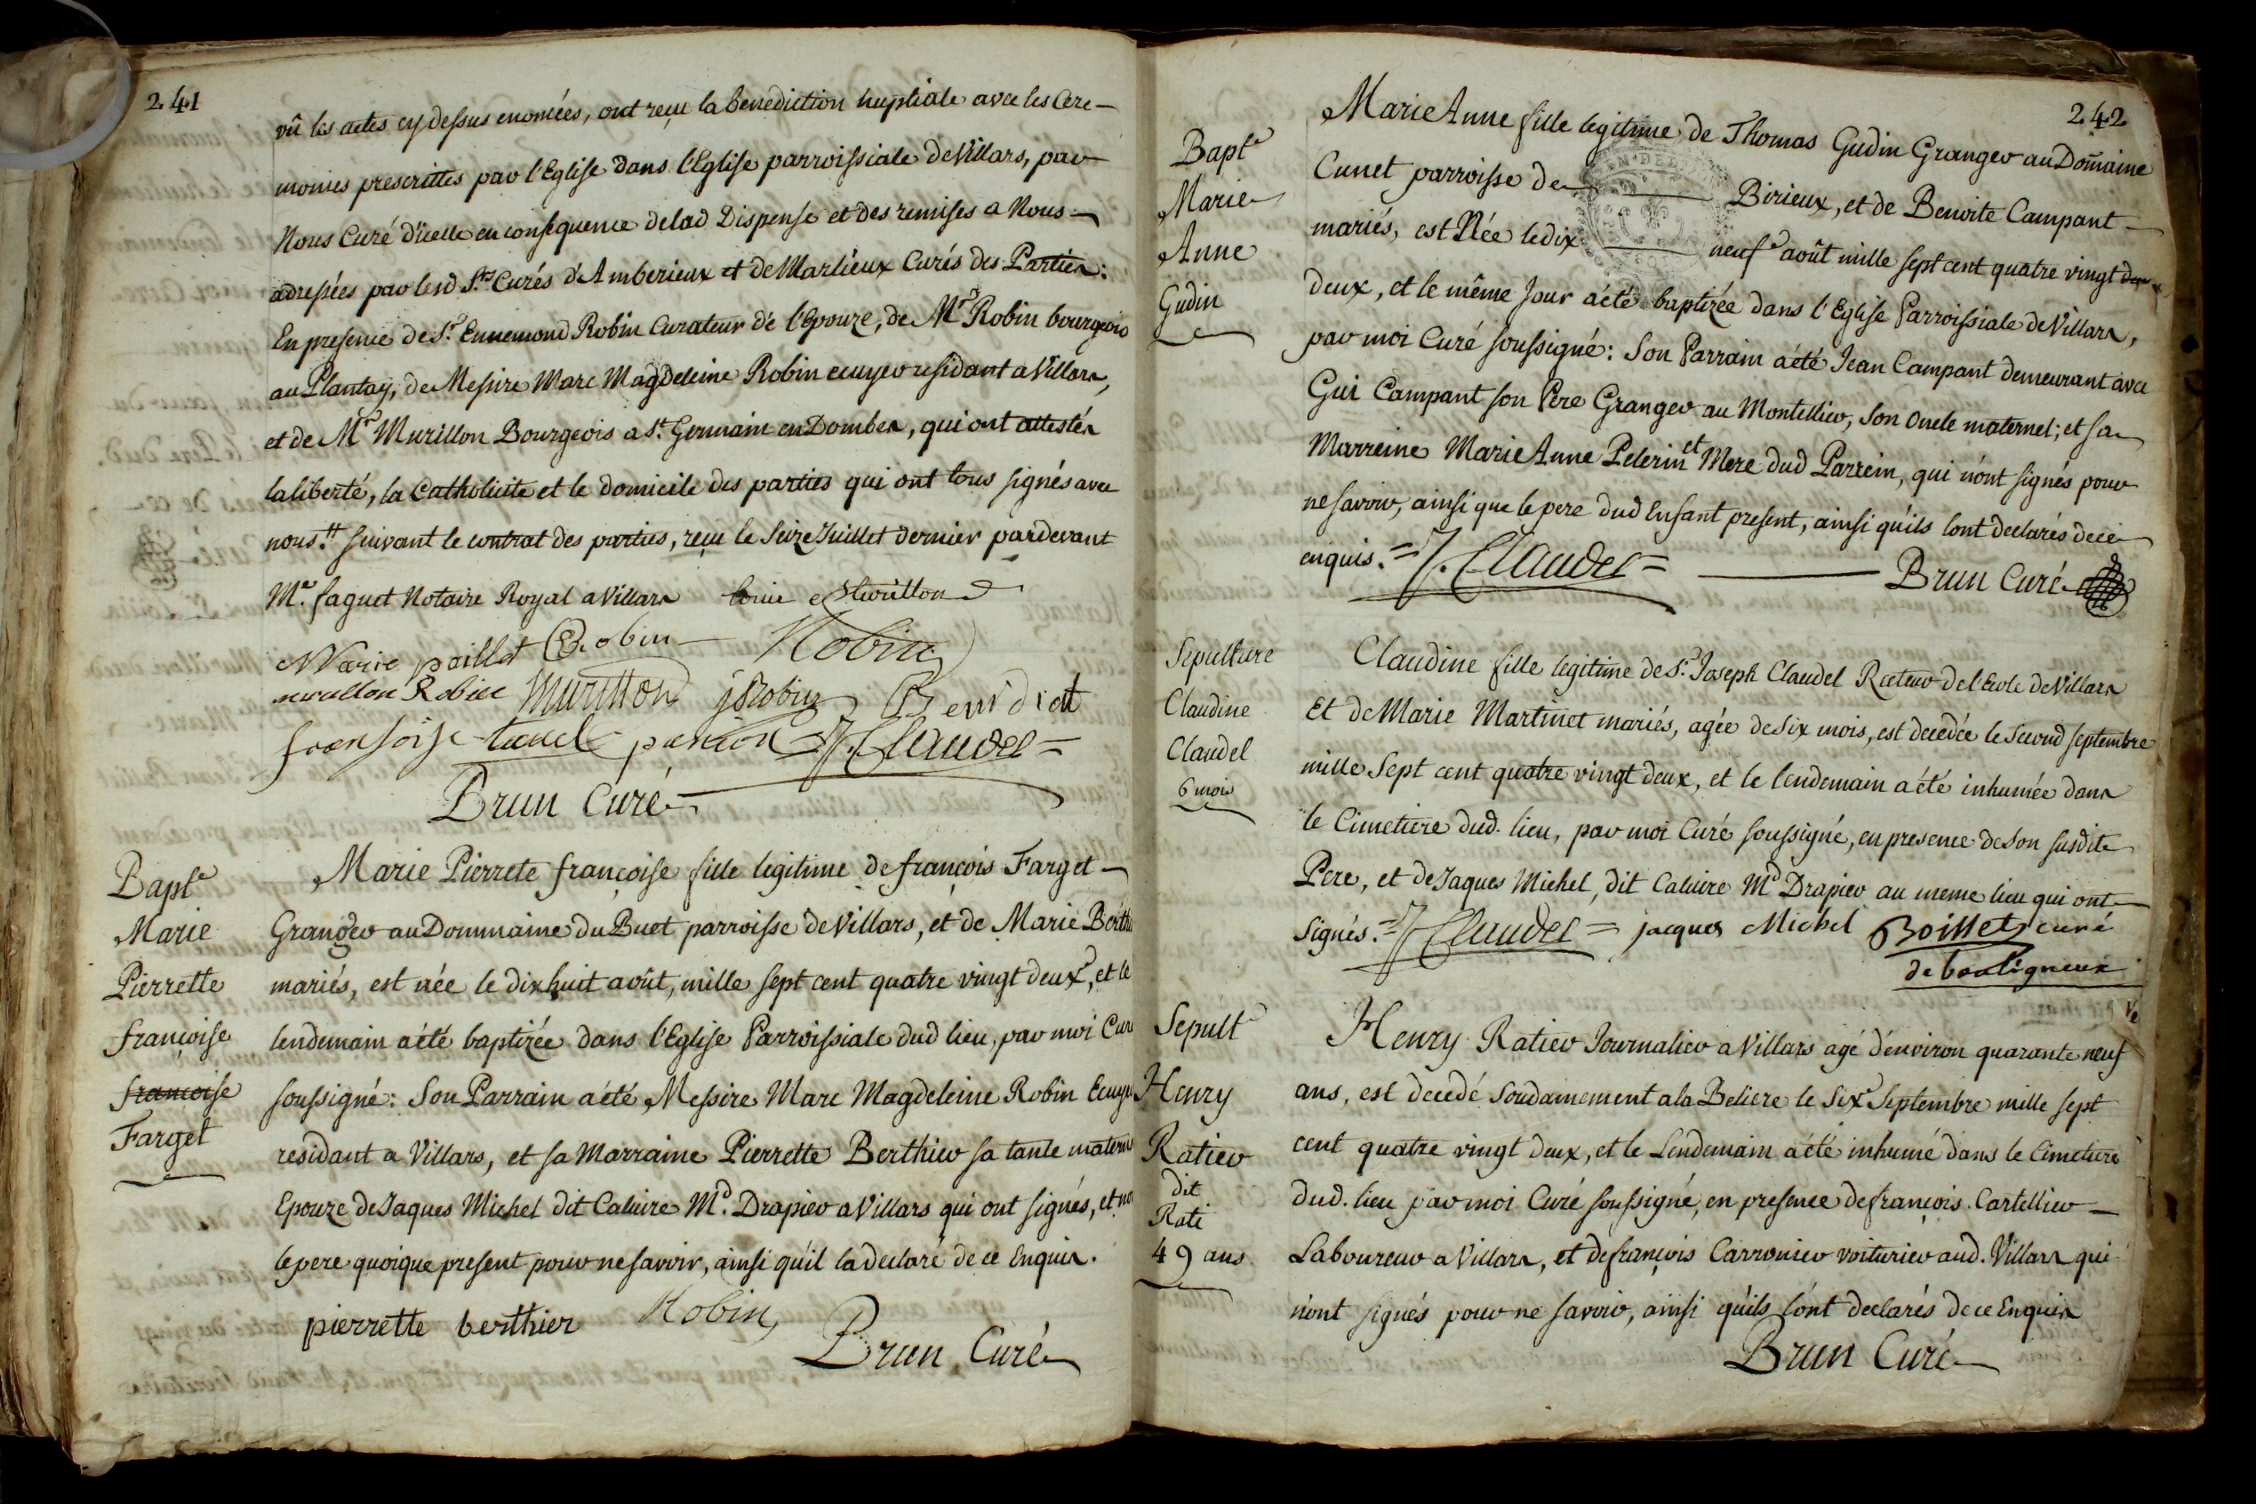 241
vû les actes cy dessus enoncées, ont reçu la benediction nuptiale avec les Cere-
monies prescrittes par l'Eglise dans l'Eglise parroissiale de Villars, par
Nous Curé d'icelle en consequence de lad Dispense et des remises a Nous
adressées par lesd Srs Curés d'Amberieux et de Marlieux Curés des Parties:
En presence de Sr. Ennemond Robin Curateur de l'Epouze, de Mr Robin bourgeois
au Plantay, de Messire Marc Magdeleine Robin ecuyer residant a Villars,
et de Mr Murillon Bourgeois a St. Germain en Dombes, qui ont attestés
la liberté, la Catholicite et le domicile des parties qui ont tous signés avec
nous. suivant le contrat des parties, reçu le Seize Juillet dernier pardevant
Me. faguet Notaire Royal a Villars
Marie paillet Robin Robin
Robin Murillon jRobin Benidict
fransoise J. Claudel
Brun Curé
Bapte
Marie
Pierrette
françoise
françoise
Farget
Marie Pierrete françoise fille legitime de françois Farget
Granger au Dommaine du Buet parroisse de Villars, et de Marie Berth
mariés, est née le dixhuit août, mille sept cent quatre vingt deux, et le
lendemain a été baptizée dans l'Eglise Parroissiale dud lieu, par moi Curé
soussigné: Son Parrain a été Messire Marc Magdeleine Robin Ecuyer
residant a Villars, et sa Marraine Pierrette Berthier sa tante matern
Epouze de Jaques Michel dit Caluire Md. Drapier a Villars qui ont signés, et no
le pere quoique present pour ne savoir, ainsi qu'il la declaré de ce Enquis.
pierrette berthier Robin
Brun Curé
242
Bapte
Marie
Anne
Gudin
Marie Anne fille legitime de Thomas Gudin Granger au Domaine
Cunet parroisse de Birieux, et de Benoite Campant
mariés, est Née le dix neuf août mille sept cent quatre vingt deux
deux, et le même Jour a été baptizée dans l'Eglise Parroissiale de Villars,
par moi Curé soussigné: Son Parrain a été Jean Campant demeurant avec
Gui Campant son Pere Granger au Montellier, Son Oncle maternel; et sa
Marreine Marie Anne Pelerin et Mere dud Parrein, qui n'ont signés pour
ne savoir, ainsi que le pere dud Enfant present, ainsi qu'ils l'ont declarés de ce
enquis. = J. Claudel = Brun Curé
Sepulture
Claudine
Claudel
6 mois
Claudine fille legitime de Sr. Joseph Claudel Recteur de l'Ecole de Villars
Et de Marie Martinet mariés, agée de Six mois, est decedée le Second septembre
mille Sept cent quatre vingt deux, et le lendemain a été inhumée dans
le Cimetiere dud. lieu, par moi Curé soussigné, en presence de Son susdite
Pere, et de Jaques Michel, dit Caluire Md Drapier au meme lieu qui ont
Signés. = J. Claudel = jacques Michel Boillet curé
de bouligneux
Sepult
Henry
Ratier
dit
Rati
49 ans
Henry Ratier Journalier a Villars agé d'environ quarante neuf
ans, est decedé Soudainement a la Beliere le Six Septembre mille sept
cent quatre vingt deux, et le Lendemain a été inhumé dans le Cimetiere
dud. lieu par moi Curé soussigné, en presence de françois Cartellier
Laboureur a Villars, et de françois Carronier voiturier aud. Villars qui
n'ont signés pour ne savoir, ainsi qu'ils l'ont declarés de ce Enquis
Brun Curé